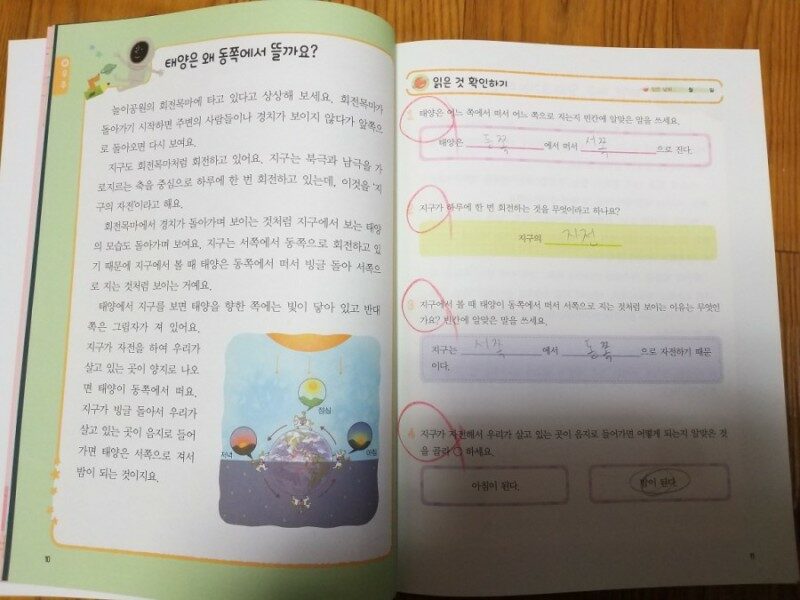 우주
태양은 왜 동쪽에서 뜰까요?
놀이공원의 회전목마에 타고 있다고 상상해 보세요. 회전목마가
돌아가기 시작하면 주변의 사람들이나 경치가 보이지 않다가 앞쪽으
로 돌아오면 다시 보여요.
지구도 회전목마처럼 회전하고 있어요. 지구는 북극과 남극을 가
로지르는 축을 중심으로 하루에 한 번 회전하고 있는데, 이것을 '지
구의 자전'이라고 해요.
회전목마에서 경치가 돌아가며 보이는 것처럼 지구에서 보는 태양
의 모습도 돌아가며 보여요. 지구는 서쪽에서 동쪽으로 회전하고 있
기 때문에 지구에서 볼 때 태양은 동쪽에서 떠서 빙글 돌아 서쪽으
로 지는 것처럼 보이는 거예요.
태양에서 지구를 보면 태양을 향한 쪽에는 빛이 닿아 있고 반대
쪽은 그림자가 져 있어요.
지구가 자전을 하여 우리가
살고 있는 곳이 양지로 나오
면 태양이 동쪽에서 떠요.
지구가 빙글 돌아서 우리가
살고 있는 곳이 음지로 들어
가면 태양은 서쪽으로 져서
밤이 되는 것이지요.
점심
저녁
아침
10
읽은 것 확인하기
읽은 날짜 월 일
1 태양은 어느 쪽에서 떠서 어느 쪽으로 지는지 빈칸에 알맞은 말을 쓰세요.
태양은 동쪽 에서 떠서 서쪽 으로 진다.
2 지구가 하루에 한 번 회전하는 것을 무엇이라고 하나요?
지구의 자전
3 지구에서 볼 때 태양이 동쪽에서 떠서 서쪽으로 지는 것처럼 보이는 이유는 무엇인
가요? 빈칸에 알맞은 말을 쓰세요.
지구는 서쪽 에서 동쪽 으로 자전하기 때문
이다.
4 지구가 자전해서 우리가 살고 있는 곳이 음지로 들어가면 어떻게 되는지 알맞은 것
을 골라 ○ 하세요.
아침이 된다.
밤이 된다.
11